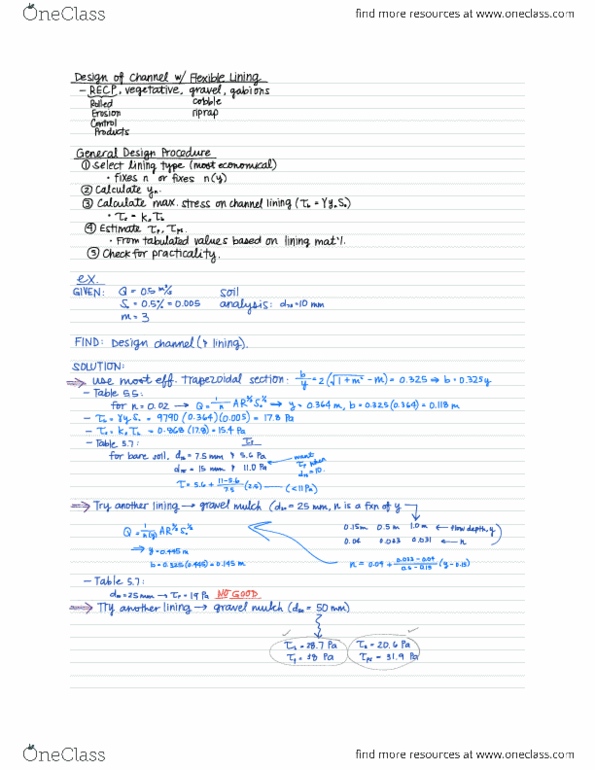 OneClass
find more resources at www.oneclass.com
Design of Channel w/ Flexible Lining
– RECP, vegetative, gravel, gabions
Rolled cobble
Erosion riprap
Control
Products
General Design Procedure
① Select lining type (most economical)
• fixes n or fixes n(y)
② Calculate yₙ.
③ Calculate max. stress on channel lining (τb = γyₙS₀)
• τs = ksτb
④ Estimate τp, τps
• From tabulated values based on lining mat'l.
⑤ Check for practicality.
ex.
GIVEN: Q = 0.5 m³/s soil
S₀ = 0.5% = 0.005 analysis: d₅₀=10 mm
m = 3
FIND: Design channel (& lining).
SOLUTION:
⇒ use most eff. trapezoidal section: b/y = 2(√1+m² - m) = 0.325 ⇒ b = 0.325y
– Table 5.5:
for n = 0.02 → Q = 1/n AR^⅔ S₀^½ → y = 0.364 m, b = 0.325(0.364) = 0.118 m
– τb = γyS₀ = 9790 (0.364)(0.005) = 17.8 Pa
– τs = ksτb = 0.868 (17.8) = 15.4 Pa
– Table 5.7: τp
for bare soil, = 7.5 mm & 5.6 Pa want
= 15 mm & 11.0 Pa τp when
d₅₀ = 10.
τ = 5.6 + (11-5.6)/7.5 (2.5) (<11 Pa)
⇒ Try another lining → gravel mulch (d₅₀ = 25 mm, n is a fxn of y
0.15m 0.5 m 1.0 m ← flow depth, y
Q = 1/n(y) AR^⅔ S₀^½ 0.04 0.033 0.031 ← n
⇒ y = 0.445 m
b = 0.325(0.445) = 0.145 m n = 0.04 + (0.033 - 0.04)/(0.5 - 0.15) (y - 0.15)
– Table 5.7:
d₅₀ = 25 mm → τp = 19 Pa NO GOOD
⇒ Try another lining → gravel mulch (d₅₀ = 50 mm)
= 28.7 Pa = 20.6 Pa
= 38 Pa τps = 31.9 Pa
OneClass
find more resources at www.oneclass.com